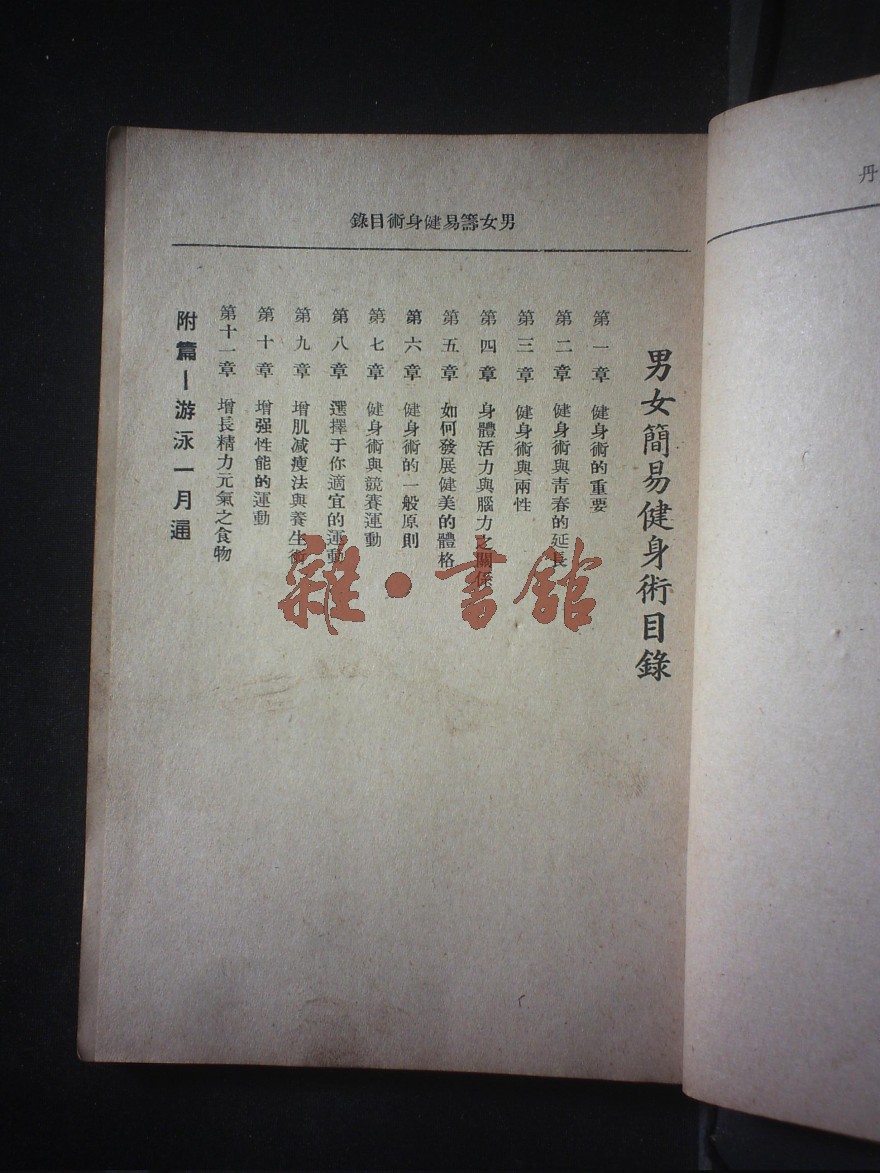 錄目術身健易籌女男
男女簡易健身術目錄
第一章 健身術的重要
第二章 健身術與青春的延長
第三章 健身術與兩性
第四章 身體活力與腦力之關係
第五章 如何發展健美的體格
第六章 健身術的一般原則
第七章 健身術與競賽運動
第八章 選擇于你適宜的運動
第九章 增肌减瘦法與養生術
第十章 增强性能的運動
第十一章 增長精力元氣之食物
附篇—游泳一月通
雜·書館
丹